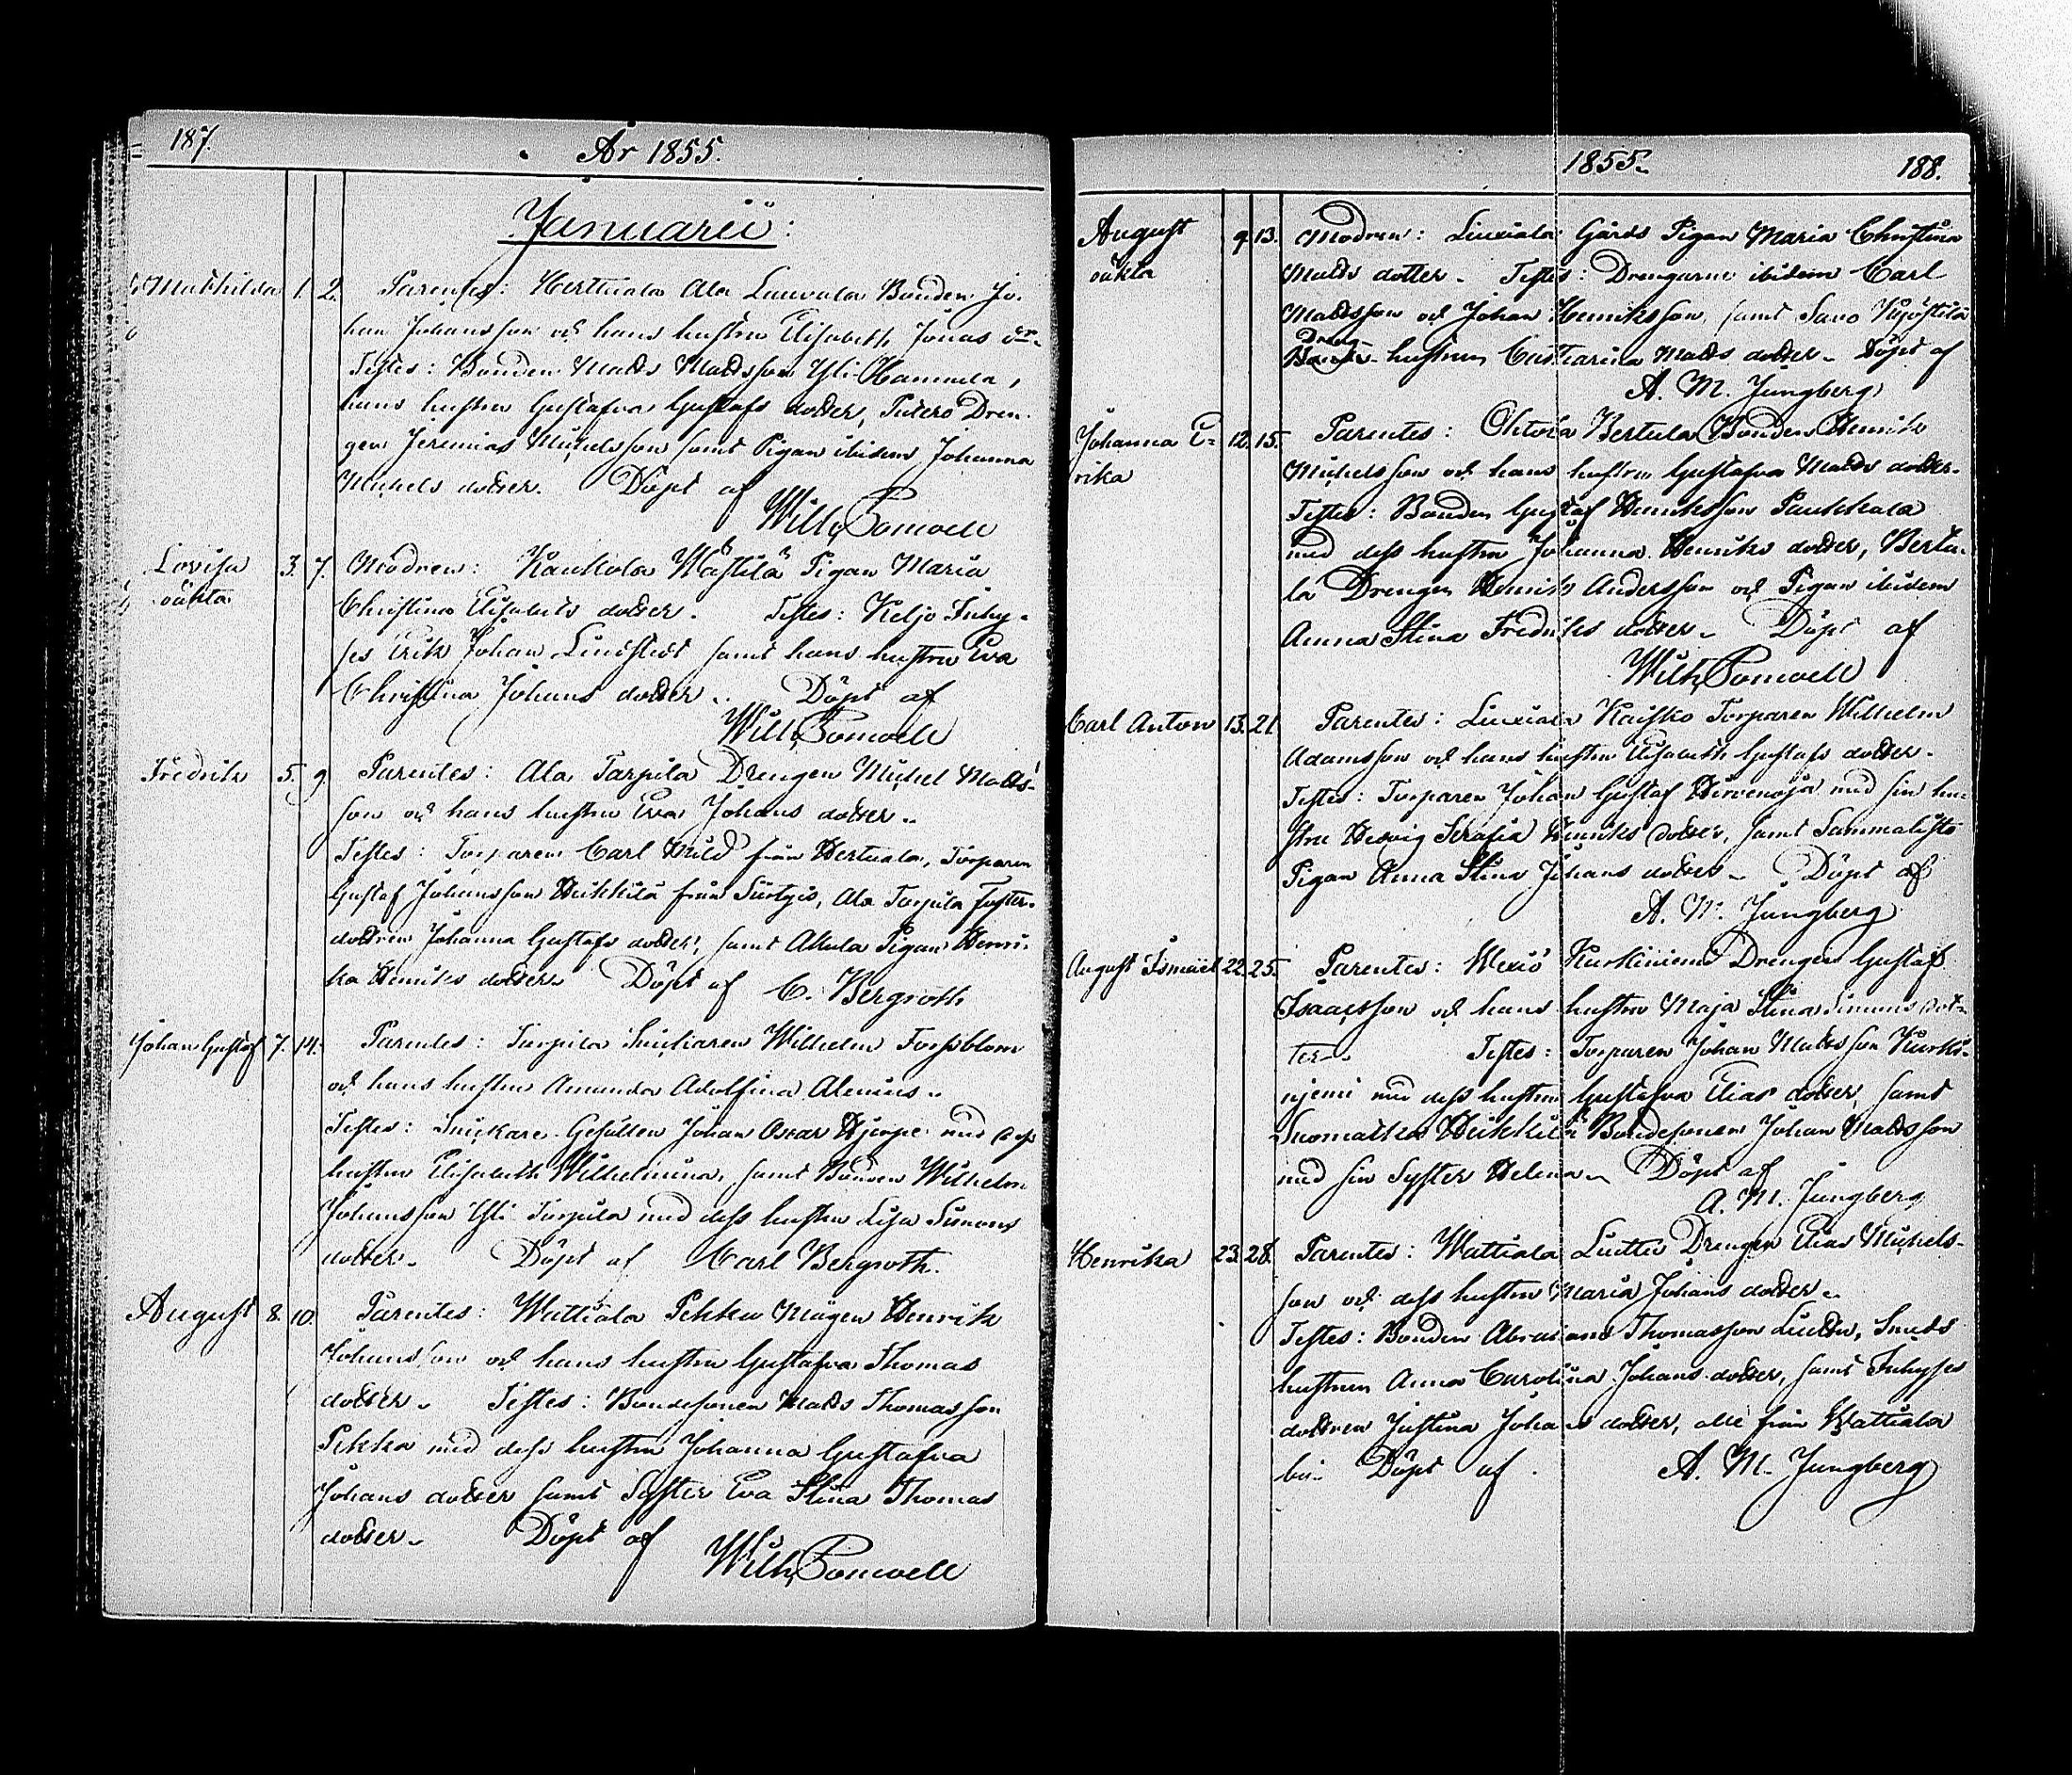 187.
År 1855.
Januarii:
Mathilda 1. 2. Parentes: Herttuala Ala Lauvola Bonden Jo-
han Johansson och hans hustru Elisabeth Jonas dr.
Testes: Bonden Matts Mattsson Yli Hannula,
hans hustru Gustafva Gustafs dotter, Pntero Dren-
gen Jeremias Michelsson samt Pigan ibidem Johanna
Michels dotter. Döpt af
Wilh. Pomoell
Lovisa 3. 7. Modren: Kaukola Wästilä Pigan Maria
oäkta Christina Elisabets dotter. Testes: Keljo Inhy-
ses Erik Johan Lindstedt samt hans hustru Eva
Christina Johans dotter. Döpt af
Wilh. Pomoell
Fredrik 5. 9. Parentes: Ala Tarpila Drengen Michel Matts-
son och hans hustru Eva Johans dotter.
Testes: Torparen Carl Mild från Hertuala, Torparen
Gustaf Johansson Heikkilä från, Ala Tarpila Foster-
dottren Johanna Gustafs dotter, samt Akula Pigan Henri-
ka Henriks dotter. Döpt af C. Bergroth
Johan Gustaf 7. 14. Parentes: Tarpila Snickaren Wilhelm Forsblom
och hans hustru Amanda Adolfina Alenius.
Testes: Snickare Gesällen Johan Oscar Hjerpe med dess
hustru Elisabeth Wilhelmina, samt Bonden Wilhelm
Johansson Yli Tarpila med dess hustru Lisa Simons
dotter. Döpt af Carl Bergroth.
August 8. 10. Parentes: Wattiala Pekka Mågen Henrik
Johansson och hans hustru Gustafva Thomas
dotter. Testes: Bondesonen Matts Thomasson
Pekka med dess hustru Johanna Gustafva
Johans dotter samt Syster Eva Stina Thomas
dotter. Döpt af
Wilh. Pomoell
1855.
188.
August 9. 13. Modren: Liuxiala Gårds Pigan Maria Christina
oäkta Matts dotter. Testes: Drengarne ibidem Carl
Mattsson och Johan Henriksson, samt Savo
Dreng-
hustrun Catharina Matts dotter. Döpt af
A. M. Jungberg
Johanna E- 12. 15. Parentes: Ohtola Bertula Bonden Henrik
rika Michelsson och hans hustru Gustafva Matts dotter.
Testes: Bonden Gustaf Henriksson Paukkala
med dess hustru Johanna Henriks dotter, Bertu-
la Drengen Henrik Andersson och Pigan ibidem
Anna Stina Fredriks dotter. Döpt af
Wilh. Pomoell
Carl Anton 13. 21. Parentes: Liuxiala Kaisko Torparen Wilhelm
Adamsson och hans hustru Elisabeth Gustafs dotter.
Testes: Torparen Johan Gustaf Hirvenoja med sin hu-
stru Hedvig Serafia Henriks dotter, samt Sammalisto
Pigan Anna Stina Johans dotter. Döpt af
A. M. Jungberg
August Ismael 22. 25. Parentes: Wexiö Kurkiniemi Drengen Gustaf
Isaacsson och hans hustru Maja Stina Simons dot-
ter. Testes: Torparen Johan Mattsson Kurki-
niemi med dess hustru Gustafva Elias dotter, samt
Suomatka Heikkilä Bondesonen Johan Mattsson
med sin Syster Helena. Döpt af
A. M. Jungberg
Henrika 23. 28. Parentes: Wattiala Luittu Drengen Elias Michels-
son och dess hustru Maria Johans dotter.
Testes: Bonden Abraham Thomasson Luittu, Smeds
hustrun Anna Carolina Johans dotter, samt Inhyses
dottren Justina Johans dotter, alle från Wattiala
by. Döpt af A. M. Jungberg